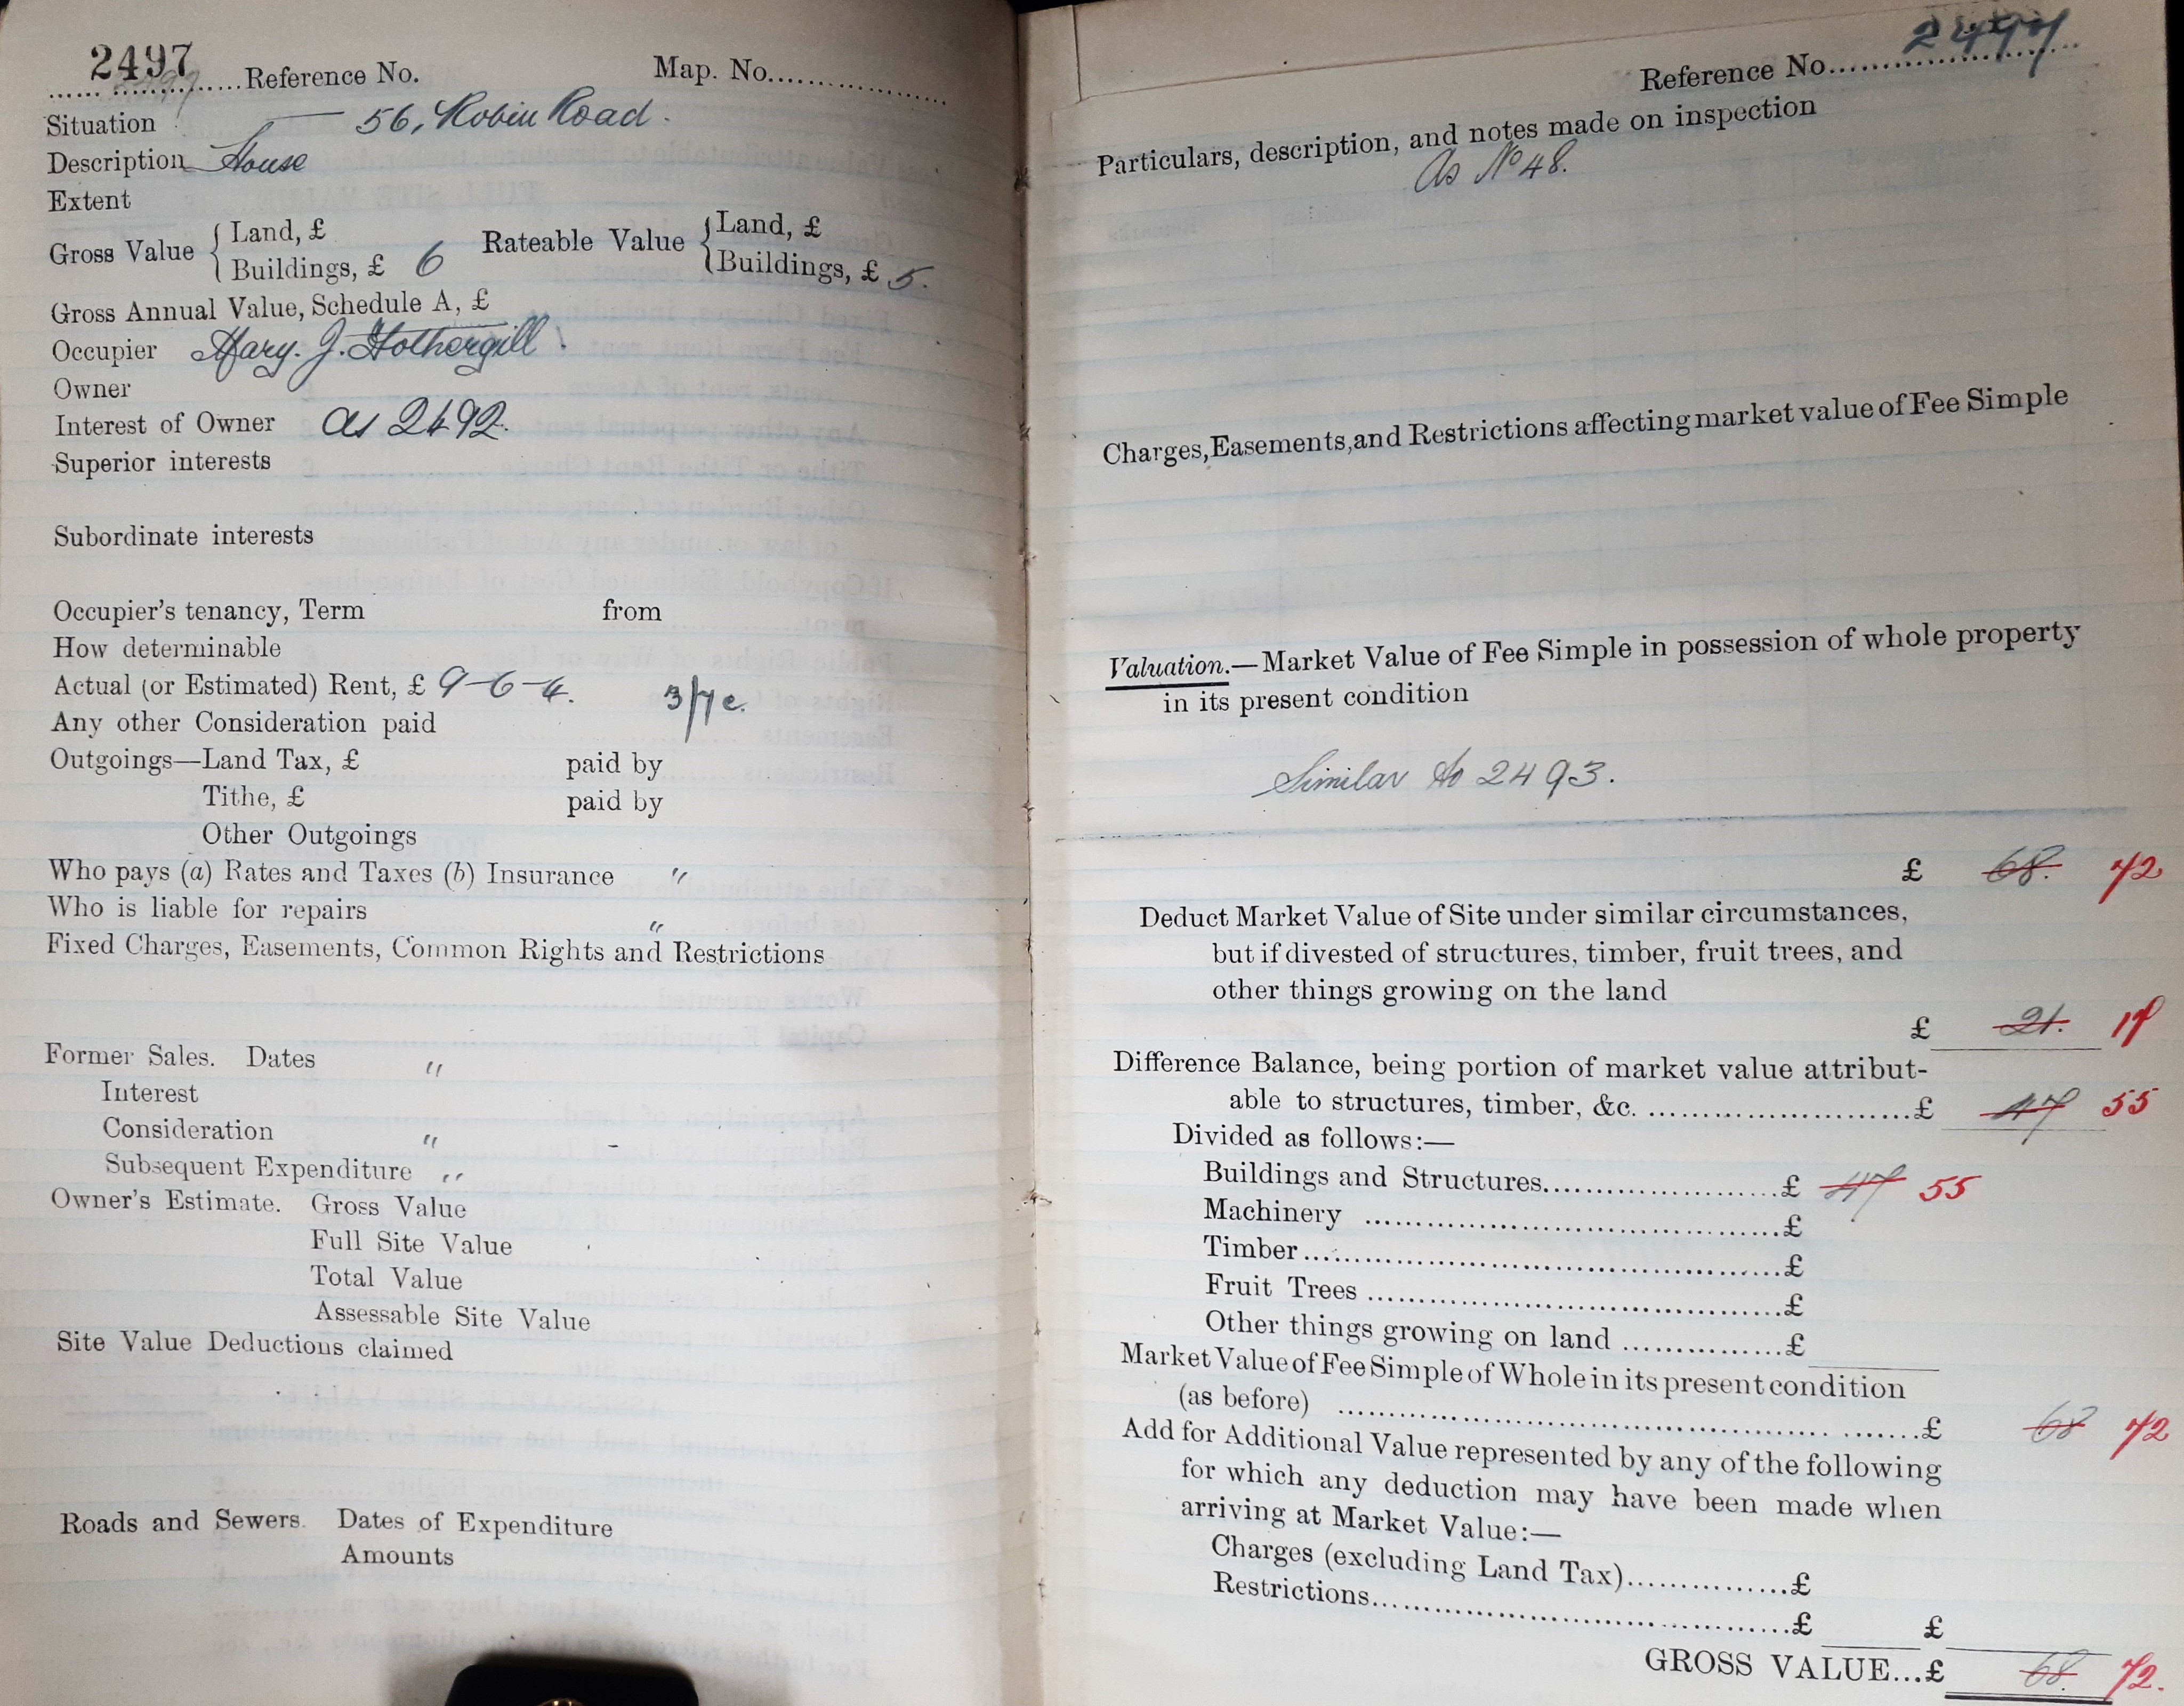 2497 Reference No. Map. No.
Situation — 56, Robin Road.
Description House
Extent
Gross Value { Land, £ Rateable Value { Land, £
Buildings, £ 6 Buildings, £ 5.
Gross Annual Value, Schedule A, £
Occupier Mary. J. Fothergill
Owner
Interest of Owner as 2492.
Superior interests
Subordinate interests
Occupier's tenancy, Term from
How determinable
Actual (or Estimated) Rent, £ 9-6-4. 3/7 c.
Any other Consideration paid
Outgoings—Land Tax, £ paid by
Tithe, £ paid by
Other Outgoings
Who pays (a) Rates and Taxes (b) Insurance "
Who is liable for repairs "
Fixed Charges, Easements, Common Rights and Restrictions
Former Sales. Dates "
Interest
Consideration "
Subsequent Expenditure "
Owner's Estimate. Gross Value
Full Site Value
Total Value
Assessable Site Value
Site Value Deductions claimed
Roads and Sewers. Dates of Expenditure
Amounts
Reference No. 2497
Particulars, description, and notes made on inspection
As No 48.
Charges, Easements, and Restrictions affecting market value of Fee Simple
Valuation.—Market Value of Fee Simple in possession of whole property
in its present condition
Similar to 2493.
£ 68. 72
Deduct Market Value of Site under similar circumstances,
but if divested of structures, timber, fruit trees, and
other things growing on the land
£ 21. 17
Difference Balance, being portion of market value attribut-
able to structures, timber, &c. £ 47 55
Divided as follows:—
Buildings and Structures £ 47 55
Machinery £
Timber £
Fruit Trees £
Other things growing on land £
Market Value of Fee Simple of Whole in its present condition
(as before) £ 68 72
Add for Additional Value represented by any of the following
for which any deduction may have been made when
arriving at Market Value:—
Charges (excluding Land Tax) £
Restrictions £ £
GROSS VALUE...£ 68. 72.